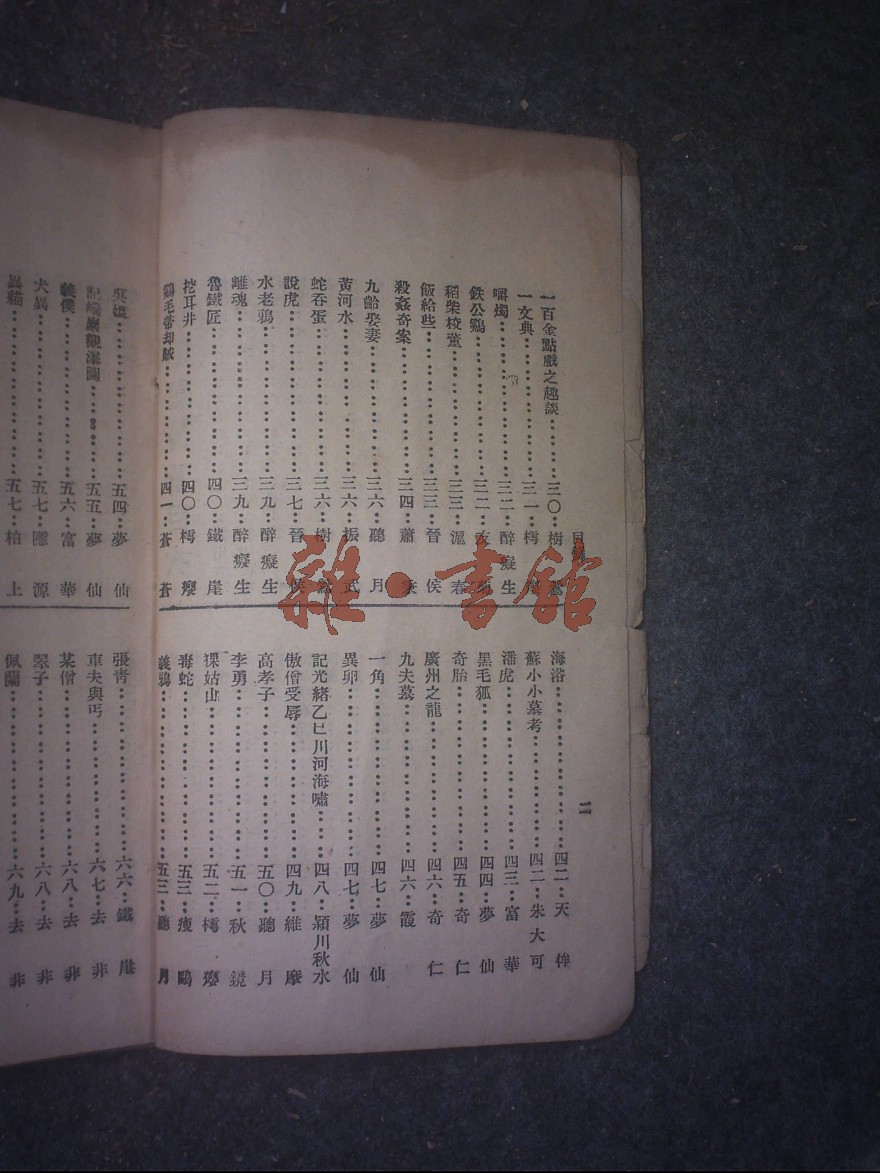 目
二
一百金點戲之趣談 三〇 樹
一文典 三一 樗癭
嚼燭 三二 醉癡生
鉄公鷄 三二
稻柴校董 三三 滬春
飯給些 三三 晉侯
殺姦奇案 三四 蕭
九齡娶妻 三六 聽月
黃河水 三六 振武
蛇吞蛋 三六 樹
說虎 三七 晉侯
水老鴉 三九 醉癡生
離魂 三九 醉癡生
魯鐵匠 四〇 鐵崖
挖耳井 四〇 樗癭
鷄毛帚却賊 四一 蒼蒼
海浴 四二 天
蘇小小墓考 四二 朱大可
潘虎 四三 富華
黑毛狐 四四 夢仙
奇胎 四五 奇仁
廣州之龍 四六 奇仁
九夫墓 四六 霞
一角 四七 夢仙
異卵 四七 夢仙
記光緒乙巳川河海嘯 四八 潁川秋水
傲僧受辱 四九 維摩
高孝子 五〇 聽月
李勇 五一 秋鏡
裸姑山 五二 樗癭
毒蛇 五三 瘦鷗
義鴉 五三 聽月
五四 夢仙
觀瀑圖 五五 夢仙
義僕 五六 富華
犬異 五七 源
異貓 五七 柏上
張靑 六六 鐵崖
車夫與丐 六七 去非
某僧 六八 去非
翠子 六八 去非
佩蘭 六九 去非
雜·書館